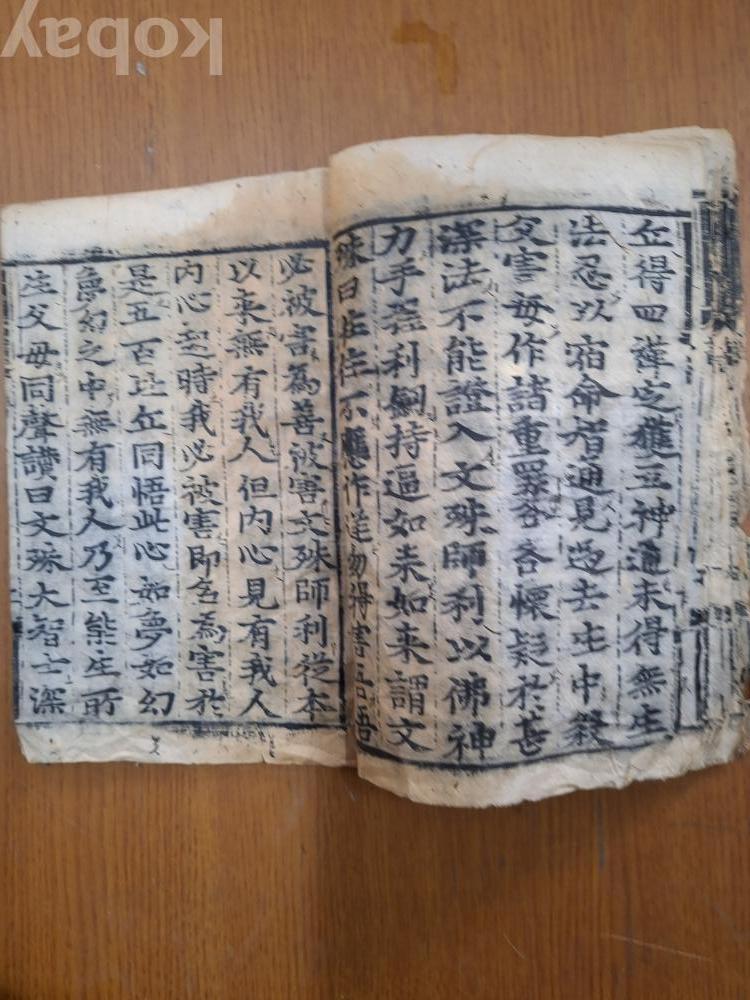 丘得四禪定獲五神通未得無生
法忍以宿命智通見過去生中殺
父害母作諸重罪各各懷疑於甚
深法不能證入文殊師利以佛神
力手握利劒持逼如来如来謂文
殊曰住住不應作逆勿得害吾吾
必被害為善被害文殊師利從本
以来無有我人但内心見有我人
内心起時我必被害即名為害於
是五百比丘同悟此心如夢如幻
夢幻之中無有我人乃至能生所
生父母同聲讃曰文殊大智士深
kobay